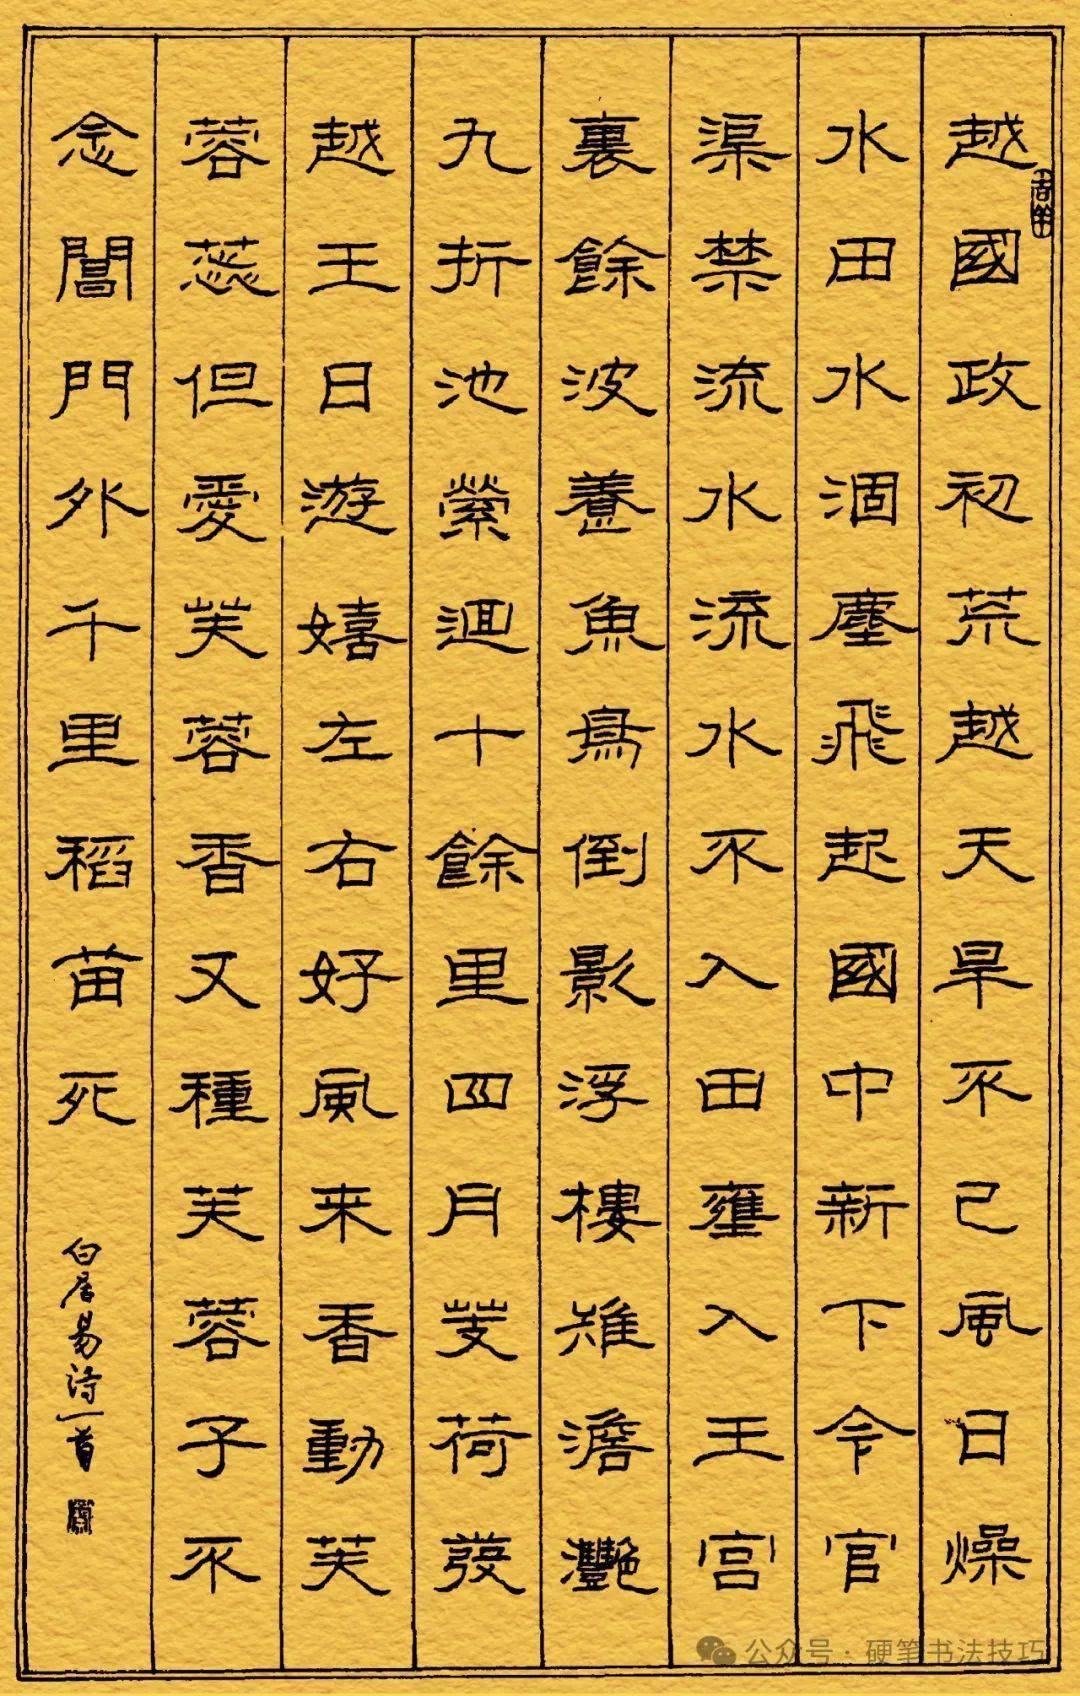 越國政初荒越天旱不已風日燥
水田水涸塵飛起國中新下令官
渠禁流水流水不入田壅入王宮
裏餘波養魚鳥倒影浮樓雉澹灧
九折池縈迴十餘里四月芰荷發
越王日遊嬉左右好風来香動芙
蓉蕊但愛芙蓉香又種芙蓉子不
念閶門外千里稻苗死
白居易诗一首
公众号·硬笔书法技巧